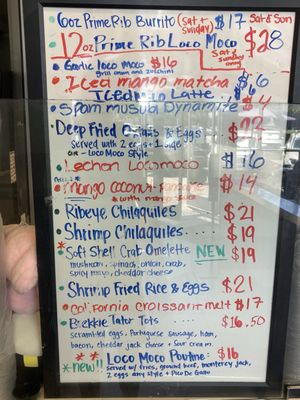 6oz Prime Rib Burrito (sat + sunday) $17 Sat & Sun
12oz Prime Rib Loco Moco $28
Sat & sunday only
Garlic loco moco $16
grill onion and zucchini
Iced mango matcha $6
Iced Milo Latte $6
Spam musubi Dynamite $4
Deep Fried & Eggs $22
Served with 2 eggs + 1 side
or - Loco Moco Style
Lechon Loco moco $16
Mango coconut $14
* with mango sauce
Ribeye Chilaquiles $21
Shrimp Chilaquiles $19
*Soft Shell Crab Omelette NEW $19
mushroom, spinach, onion, crab,
spicy mayo, cheddar cheese
Shrimp Fried Rice & Eggs $21
California croissant melt $17
Brekkie Tater Tots $16.50
scrambled eggs, Portuguese sausage, ham,
bacon, cheddar jack cheese + sour cream.
*new!! Loco Moco Poutine: $16
served w/ fries, ground beef, monterey jack,
2 eggs any style + Pico De Gallo